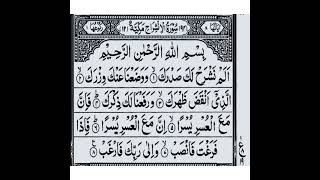 سُوْرَةُ الْاِنْشِرَاحِ
بِسْمِ اللّٰهِ الرَّحْمٰنِ الرَّحِيْمِ
اَلَمْ نَشْرَحْ لَكَ صَدْرَكَ ۱ وَوَضَعْنَا عَنْكَ وِزْرَكَ ۲
الَّذِيْٓ اَنْقَضَ ظَهْرَكَ ۳ وَرَفَعْنَا لَكَ ذِكْرَكَ ۴ فَاِنَّ
مَعَ الْعُسْرِ يُسْرًا ۵ اِنَّ مَعَ الْعُسْرِ يُسْرًا ۶ فَاِذَا
فَرَغْتَ فَانْصَبْ ۷ وَاِلٰى رَبِّكَ فَارْغَبْ ۸